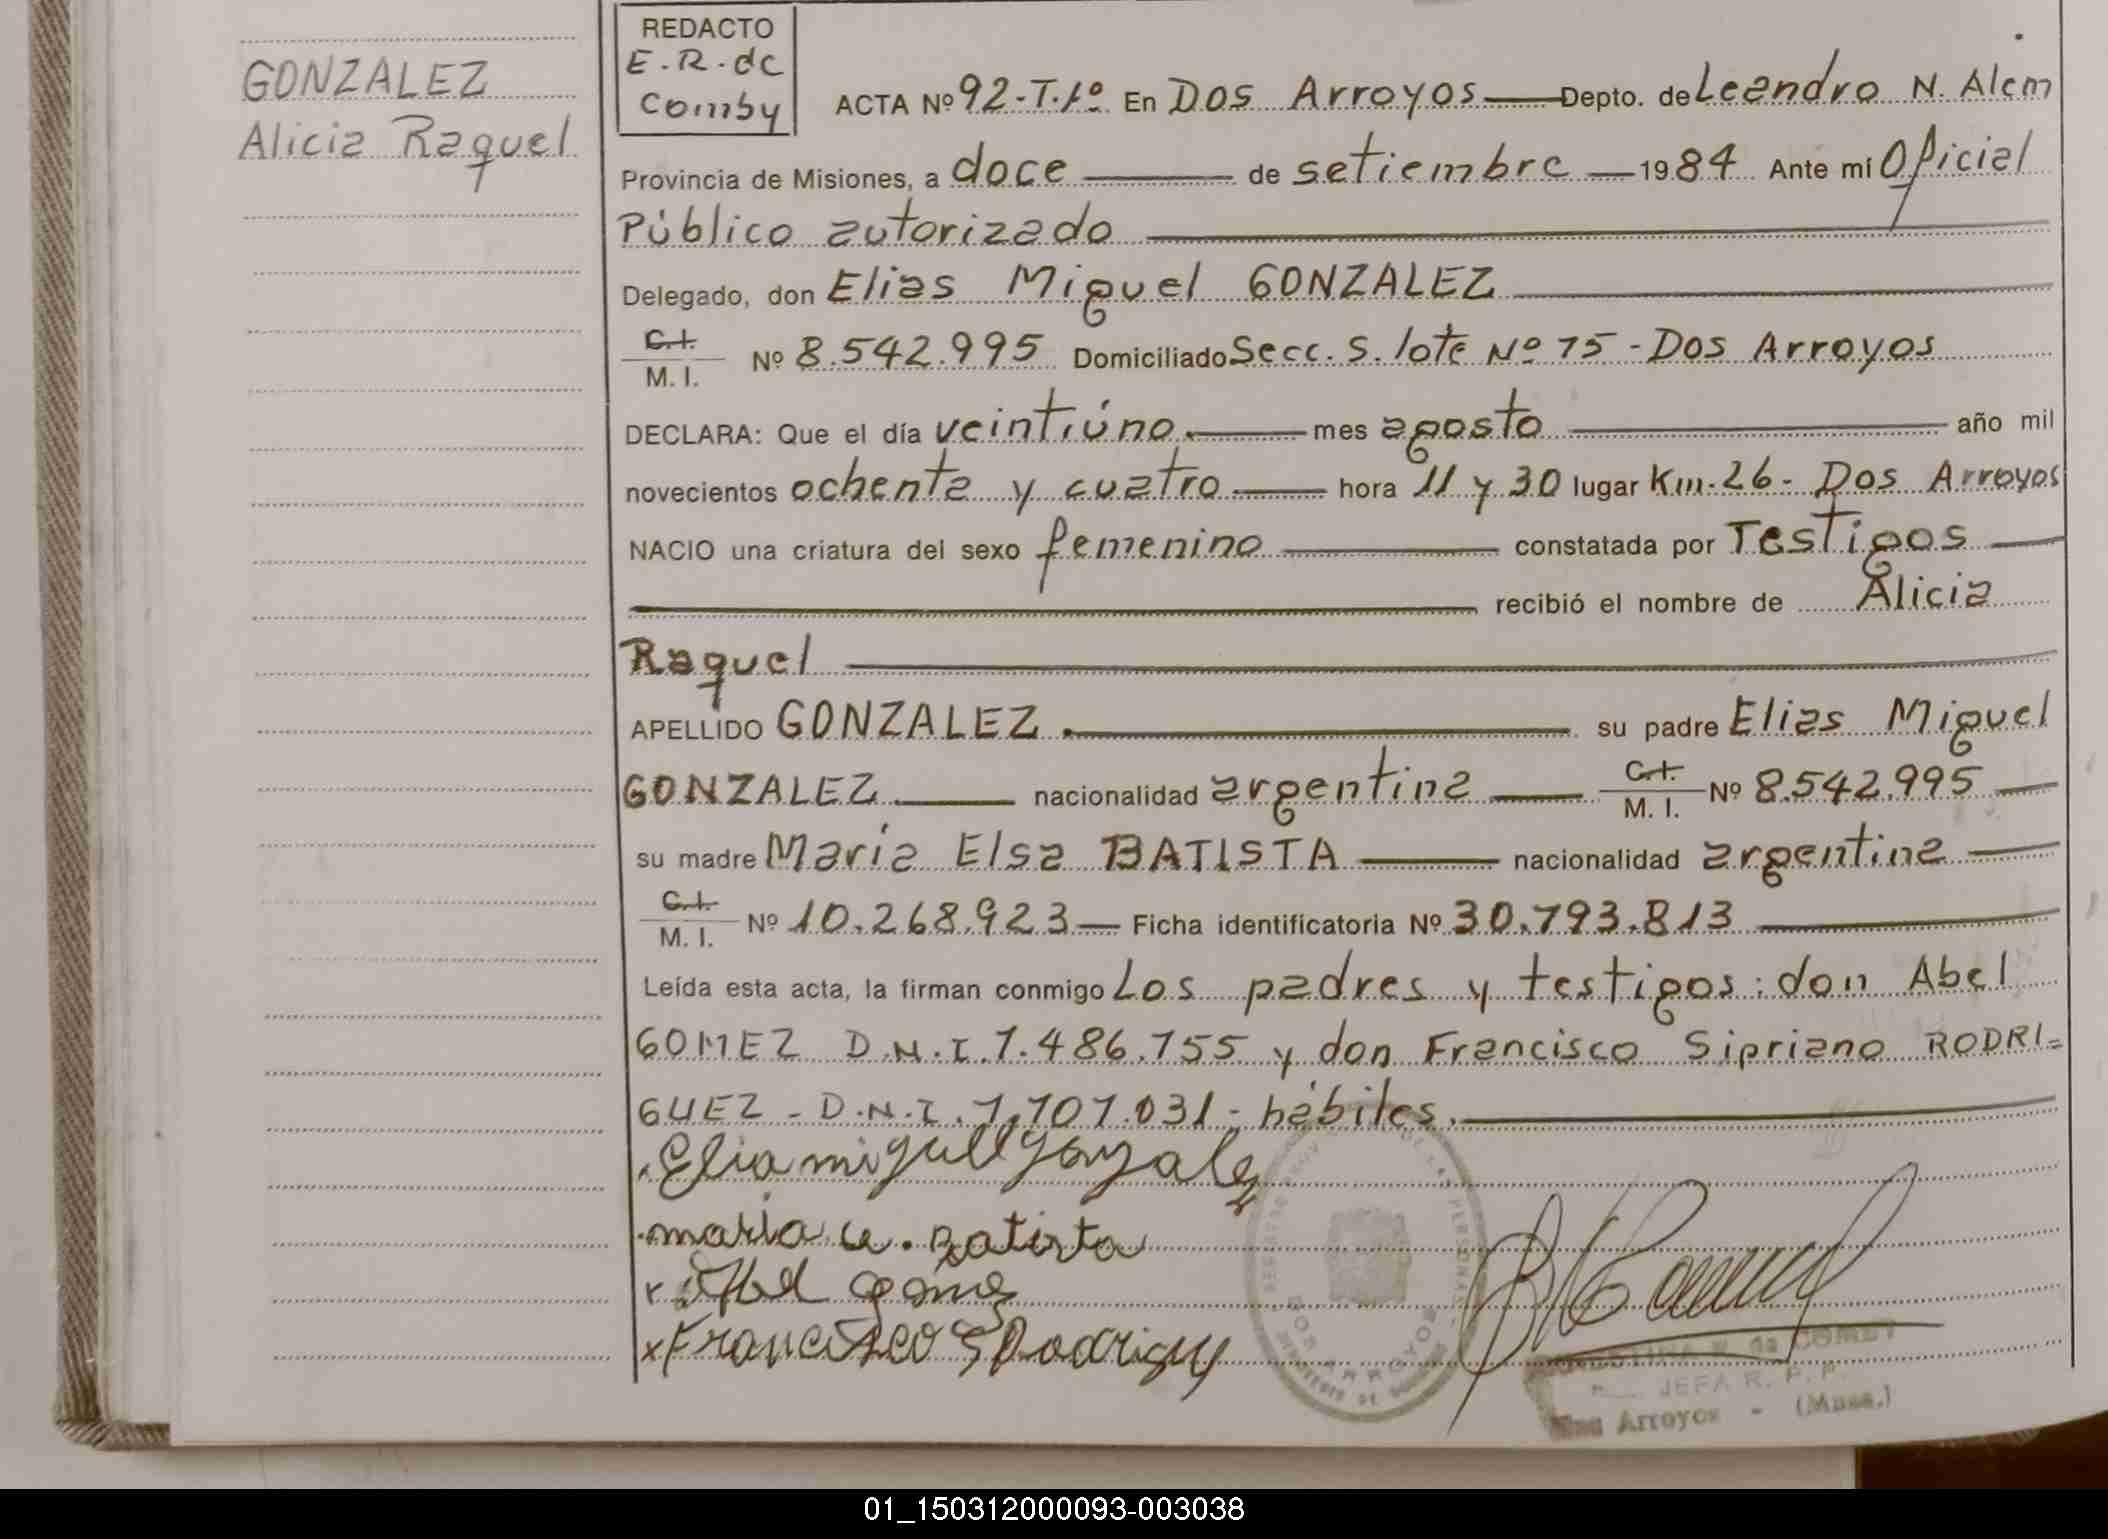 GONZALEZ
Alicia Raquel
REDACTO
E.R. de
Comby
ACTA Nº 92-T.1º En Dos Arroyos Depto. de Leandro N. Alem
Provincia de Misiones, a doce de setiembre 1984 Ante mí Oficial
Público autorizado
Delegado, don Elias Miguel GONZALEZ
C.I. M. I. Nº 8.542.995 Domiciliado Secc. S. lote Nº 75 - Dos Arroyos
DECLARA: Que el día veintiúno. mes agosto año mil
novecientos ochenta y cuatro hora 11 y 30 lugar Km. 26 - Dos Arroyos
NACIO una criatura del sexo femenino constatada por Testigos
recibió el nombre de Alicia
Raquel
APELLIDO GONZALEZ su padre Elias Miguel
GONZALEZ nacionalidad argentina C.I. M. I. Nº 8.542.995
su madre María Elsa BATISTA nacionalidad argentina
C.I. M. I. Nº 10.268.923 Ficha identificatoria Nº 30.793.813
Leída esta acta, la firman conmigo Los padres y testigos: don Abel
GOMEZ D.N.I. 7.486.755 y don Francisco Sipriano RODRI=
GUEZ - D.N.I. 7.707.031 - hábiles.
Elia miguel gonzalez
maria e. Batista
x Abel gomez
x Francisco S Rodriguez
DOS ARROYOS
de COMBY
JEFA R. P. P.
Dos Arroyos - (Mnes.)
01_150312000093-003038